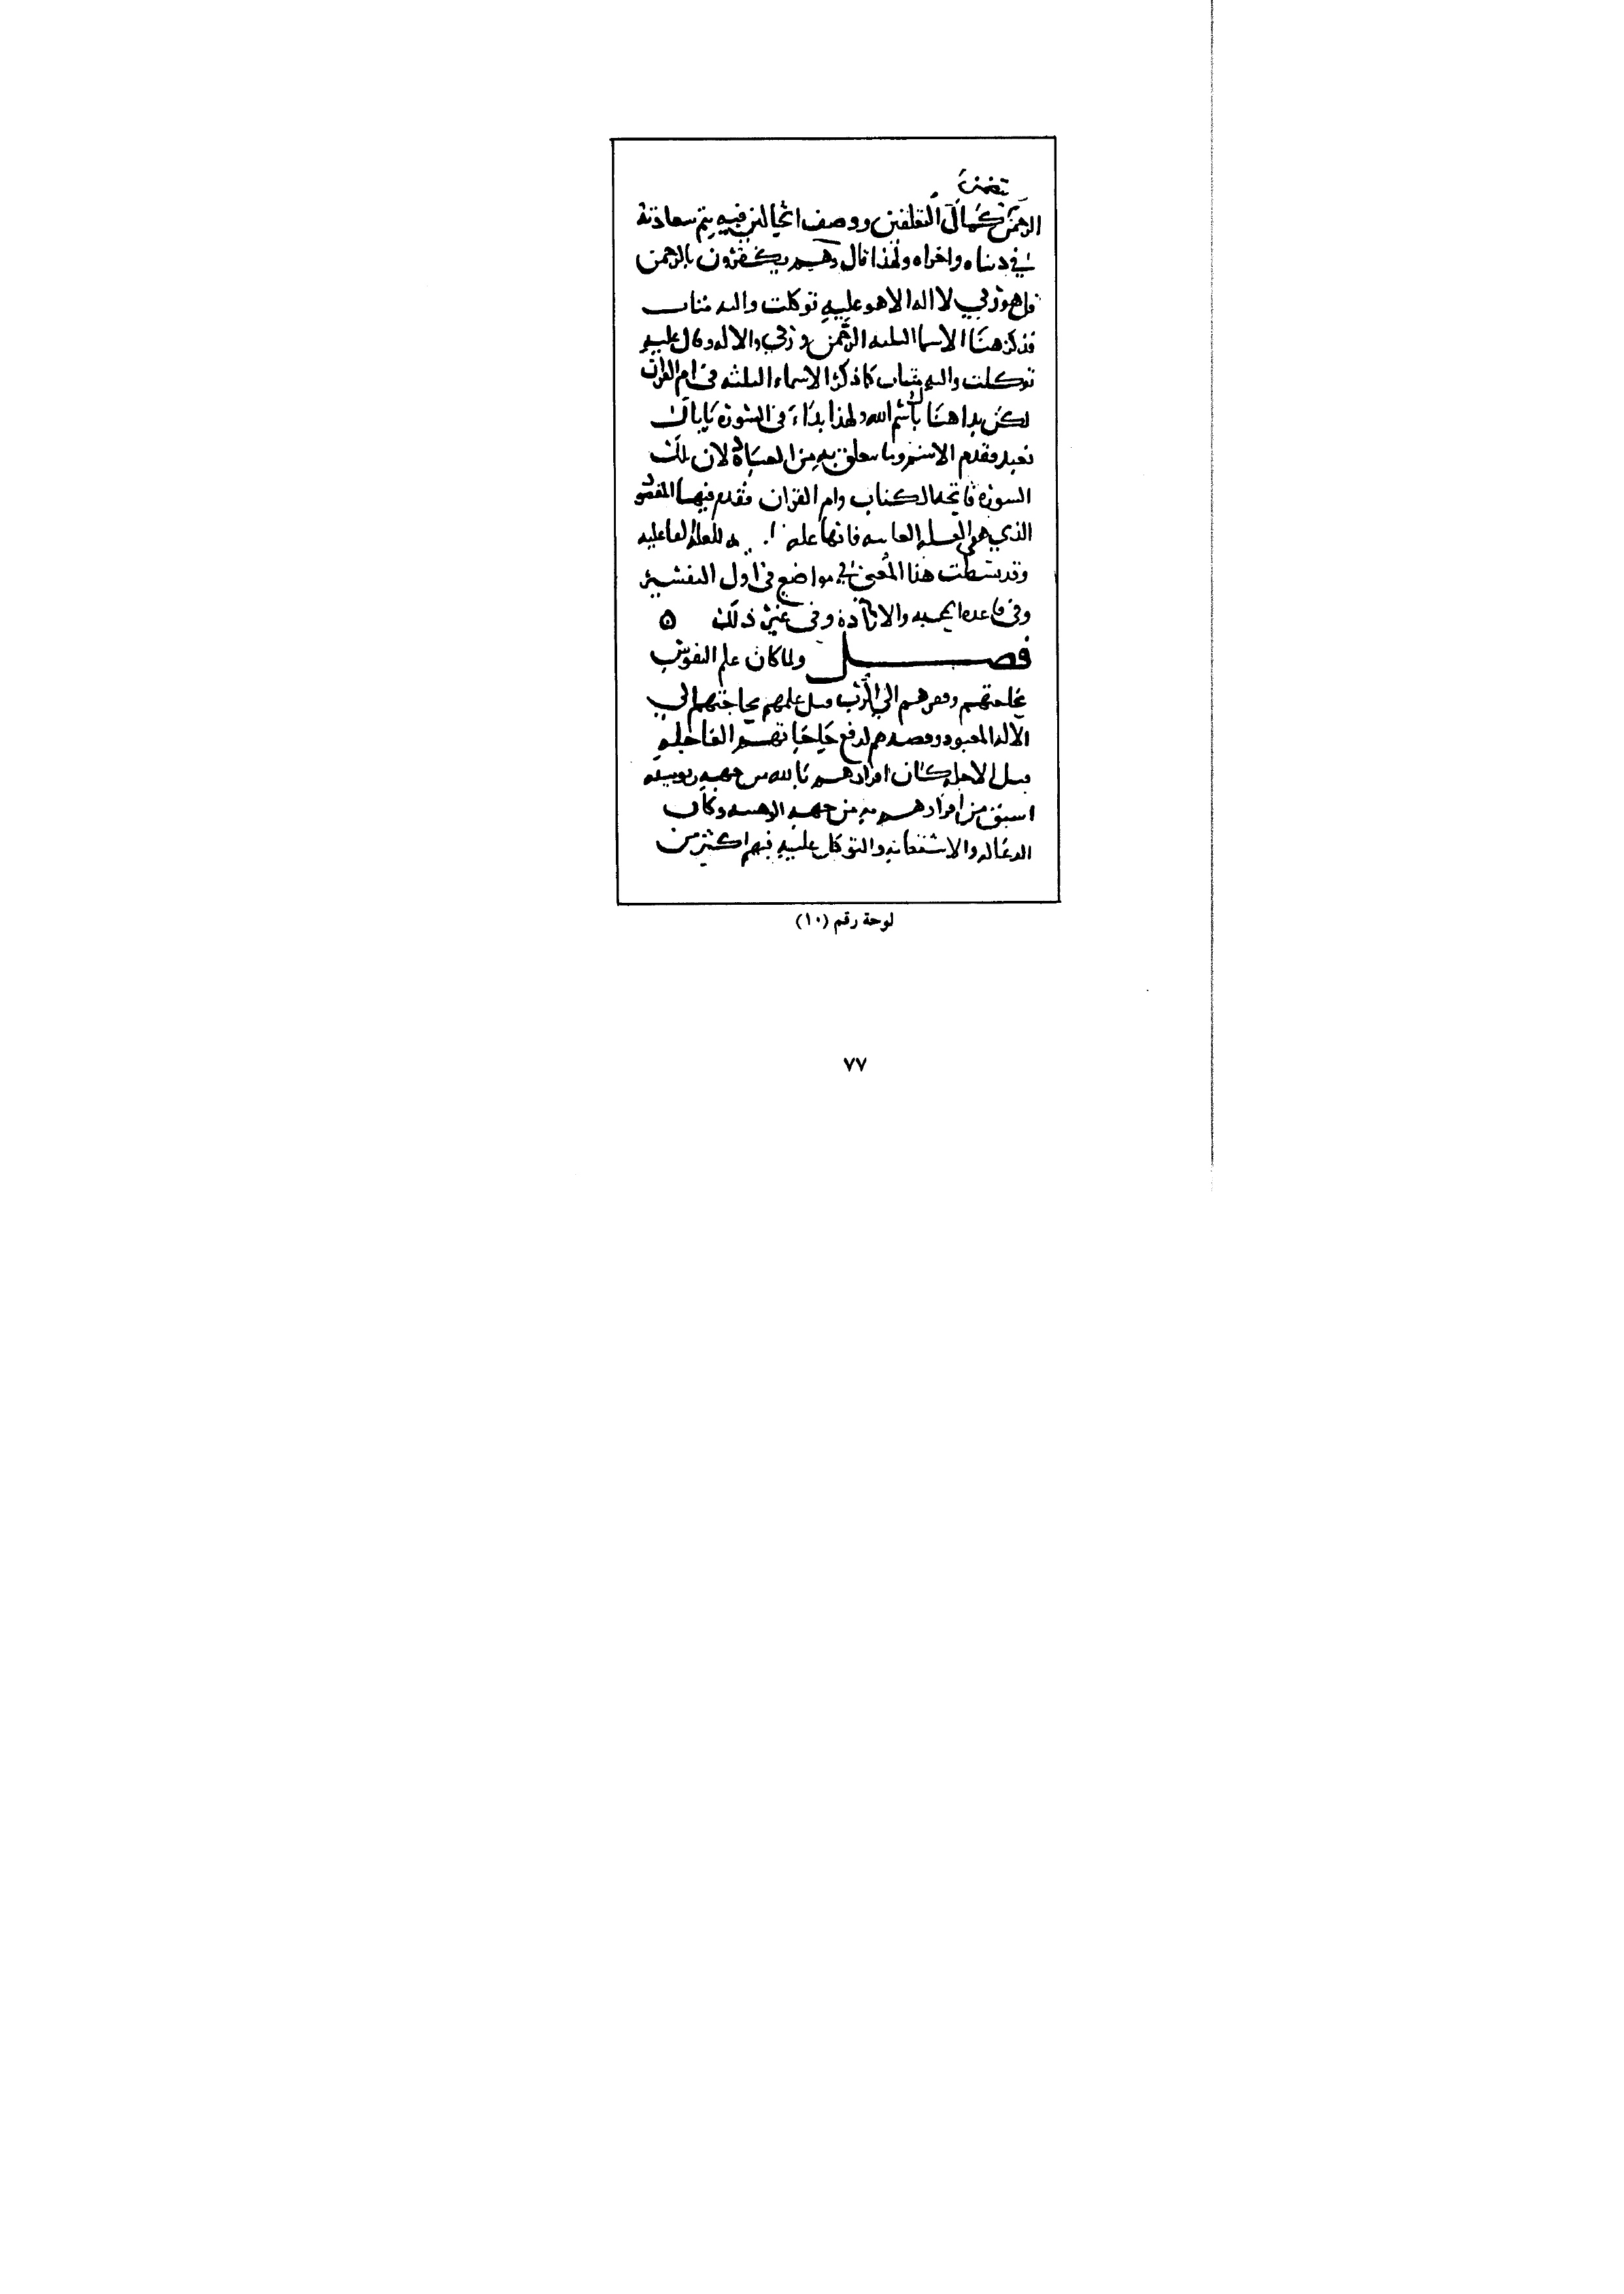 تضمن
الرحمن كمال التعلقين ووصف الحالين فيه يتم سعادته
في دنياه واخراه ولهذا قال وهم يكفرون بالرحمن
قل هو ربي لا اله الا هو عليه توكلت واليه متاب
فذكر هنا الاسما الثلثه الرحمن وربي والاله وقال عليه
توكلت واليه متاب كما ذكر الاسماء الثلثه في ام القران
لكن بدا هناك باسم الله ولهذا بداء في السورة باياك
نعبد فقدم الاسم وما يتعلق به من العبادة لان تلك
السورة فاتحة الكتاب وام القران فقدم فيها المقصود
الذي هو العله الغاييه فانها عله للعله الفاعليه
وقد بسطت هذا المعنى في مواضع في اول التفسير
وفي قاعدة المحبه والارادة وفي غير ذلك ه
فصل ولما كان علم النفوس
بحاجتهم وفقرهم الي الرب قبل علمهم بحاجتهم الي
الاله المعبود وقصدهم لدفع حاجاتهم العاجله
قبل الاجله كان اقرارهم بالله من جهه ربوبيته
اسبق من اقرارهم به من جهه الوهيته وكان
الدعا له والاستعانه والتوكل عليه فيهم اكثر من
لوحة رقم (١٠)
٧٧